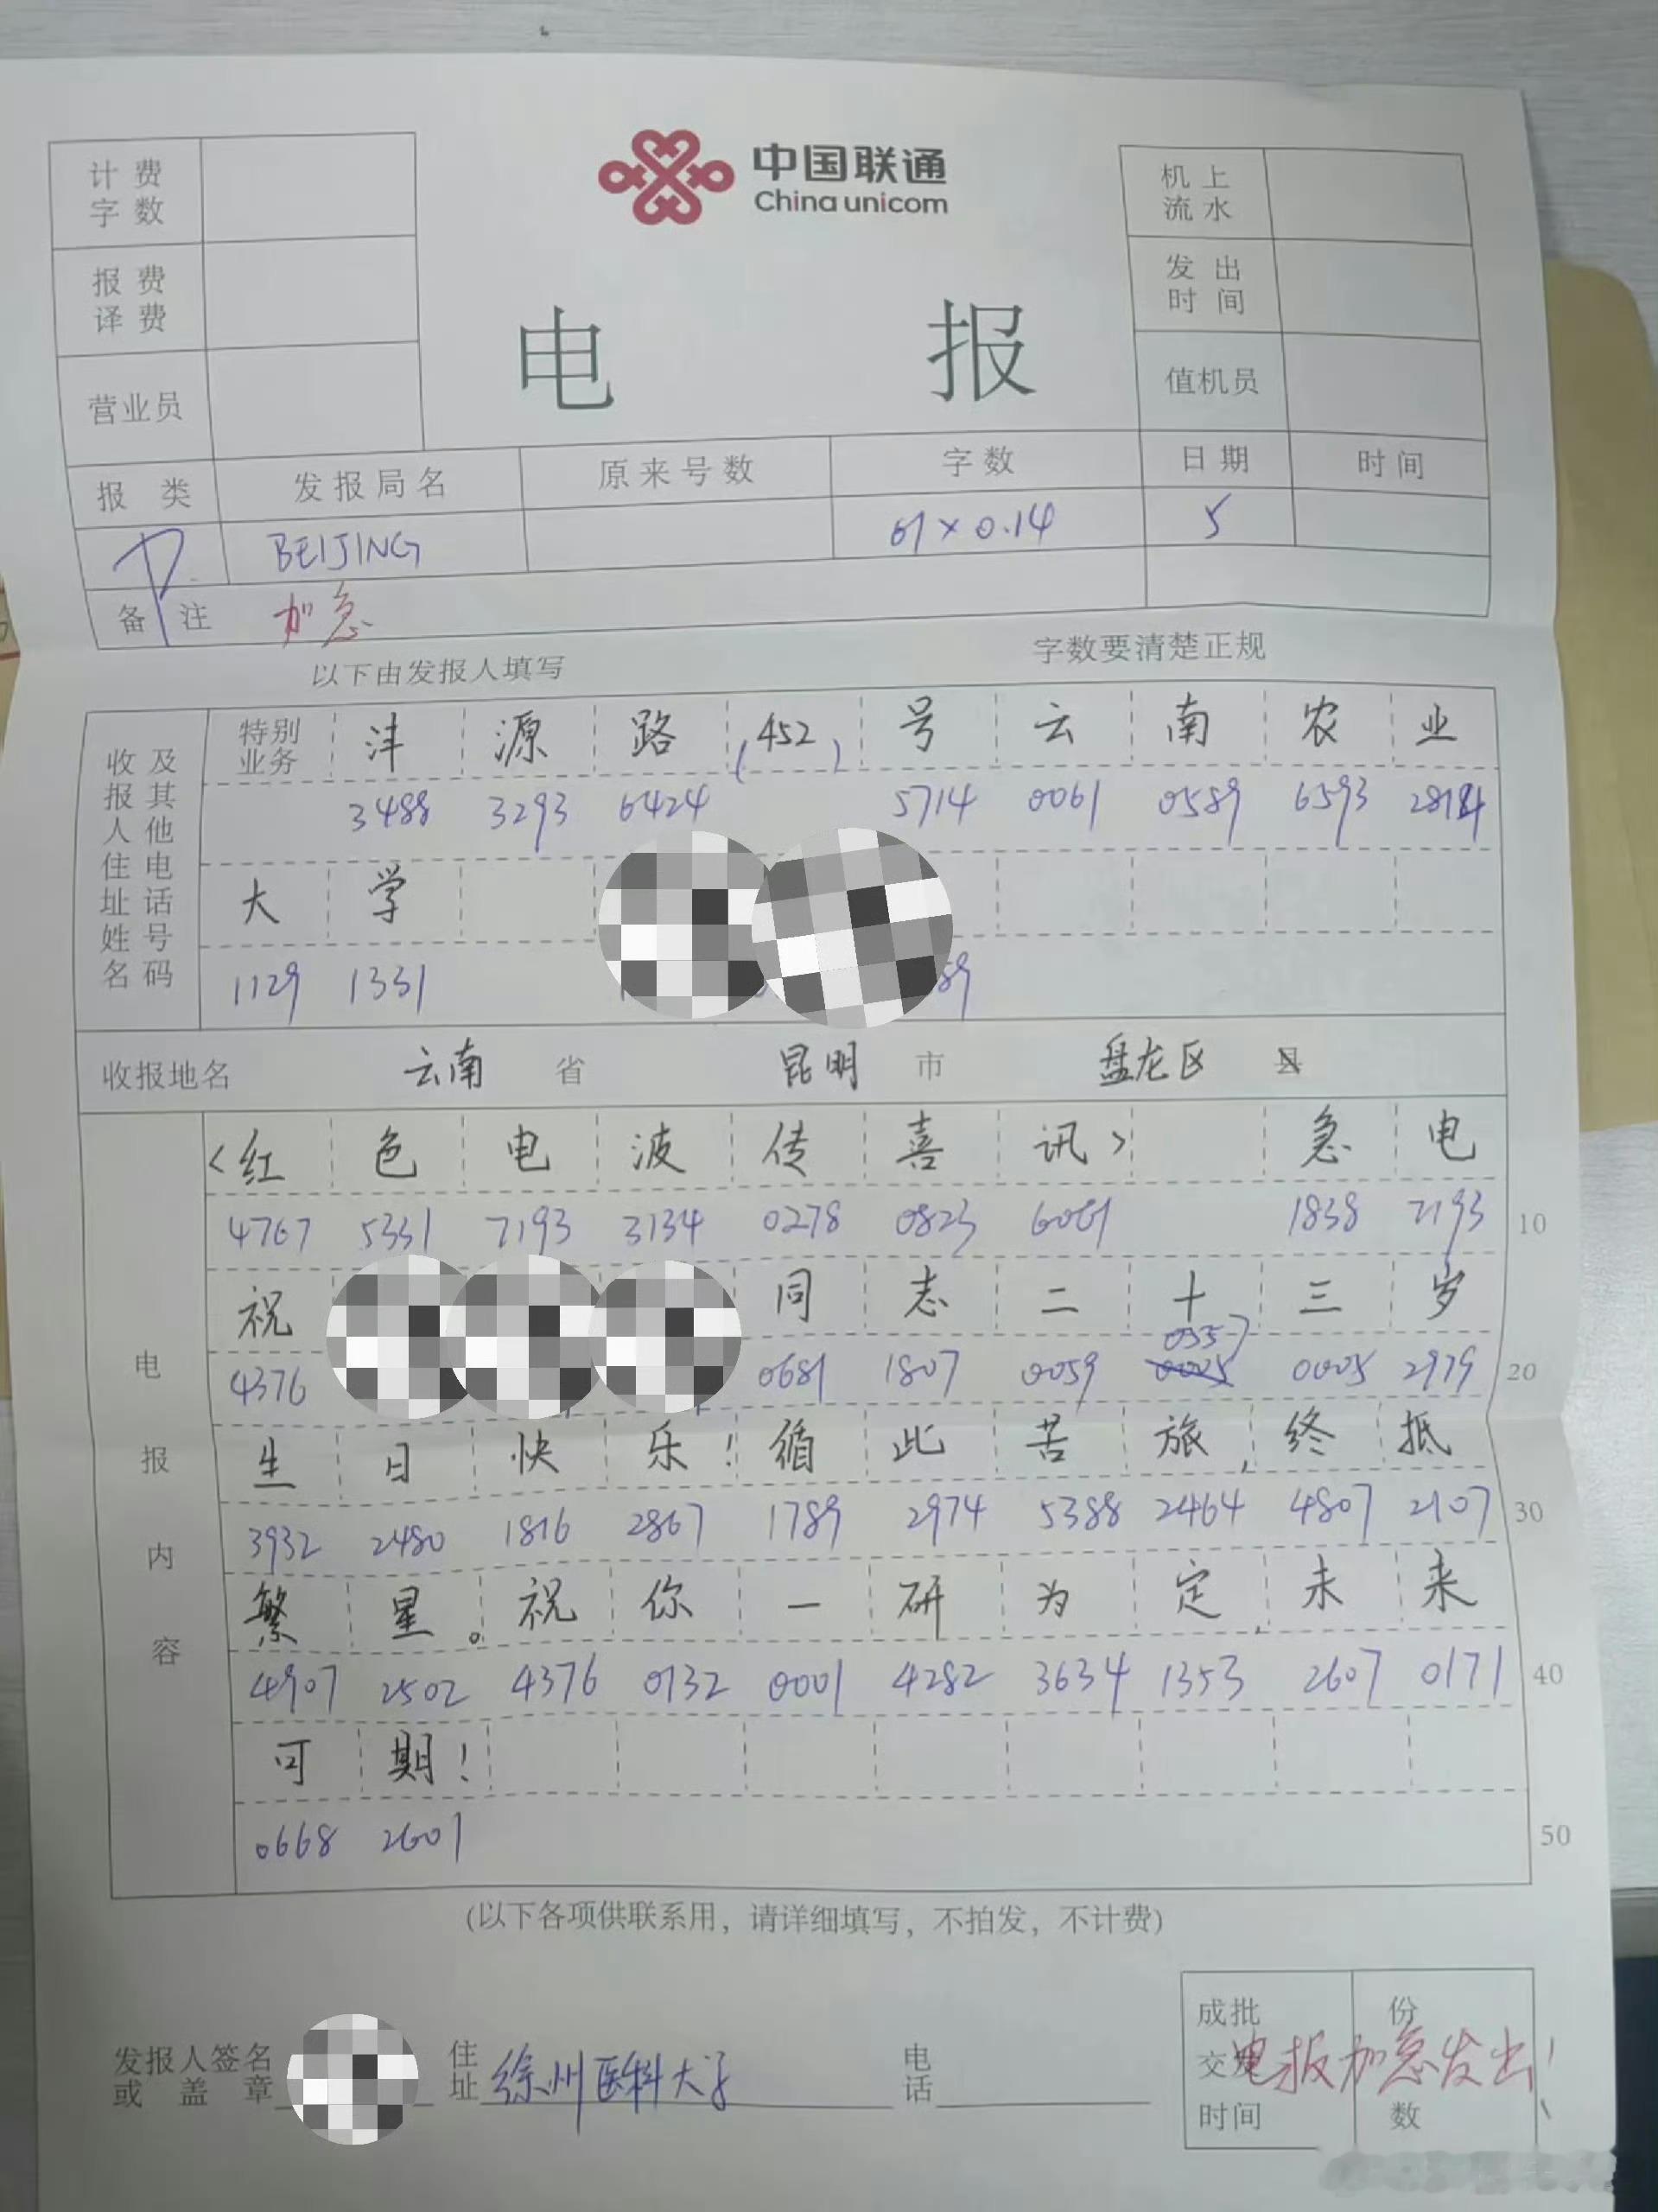 计费字数
报费译费
营业员
中国联通
China unicom
电报
机上流水
发出时间
值机员
报类 发报局名 原来号数 字数 日期 时间
BEIJING 61×0.14 5
备注 加急
以下由发报人填写 字数要清楚正规
收报人住址姓名及其他电话号码
特别业务 沣 源 路 (452) 号 云 南 农 业
3488 3293 6424 5714 0061 0589 6593 2814
大 学
1129 1331
收报地名 云南 省 昆明 市 盘龙区 县
电报内容
<红 色 电 波 传 喜 讯> 急 电
4767 5331 7193 3134 0278 0823 6061 1838 7193 10
祝 同 志 二 十 三 岁
0557
4376 0681 1807 0059 0005 0005 2979 20
生 日 快 乐! 循 此 苦 旅, 终 抵
3932 2480 1816 2867 1789 2974 5388 2464 4807 2107 30
繁 星。 祝 你 一 研 为 定, 未 来
4907 2502 4376 0132 0001 4282 3634 1353 2607 0171 40
可 期!
0668 2601 50
(以下各项供联系用，请详细填写，不拍发，不计费)
发报人签名或盖章 住址 徐州医科大学 电话
成批交发时间 份数
电报加急发出!